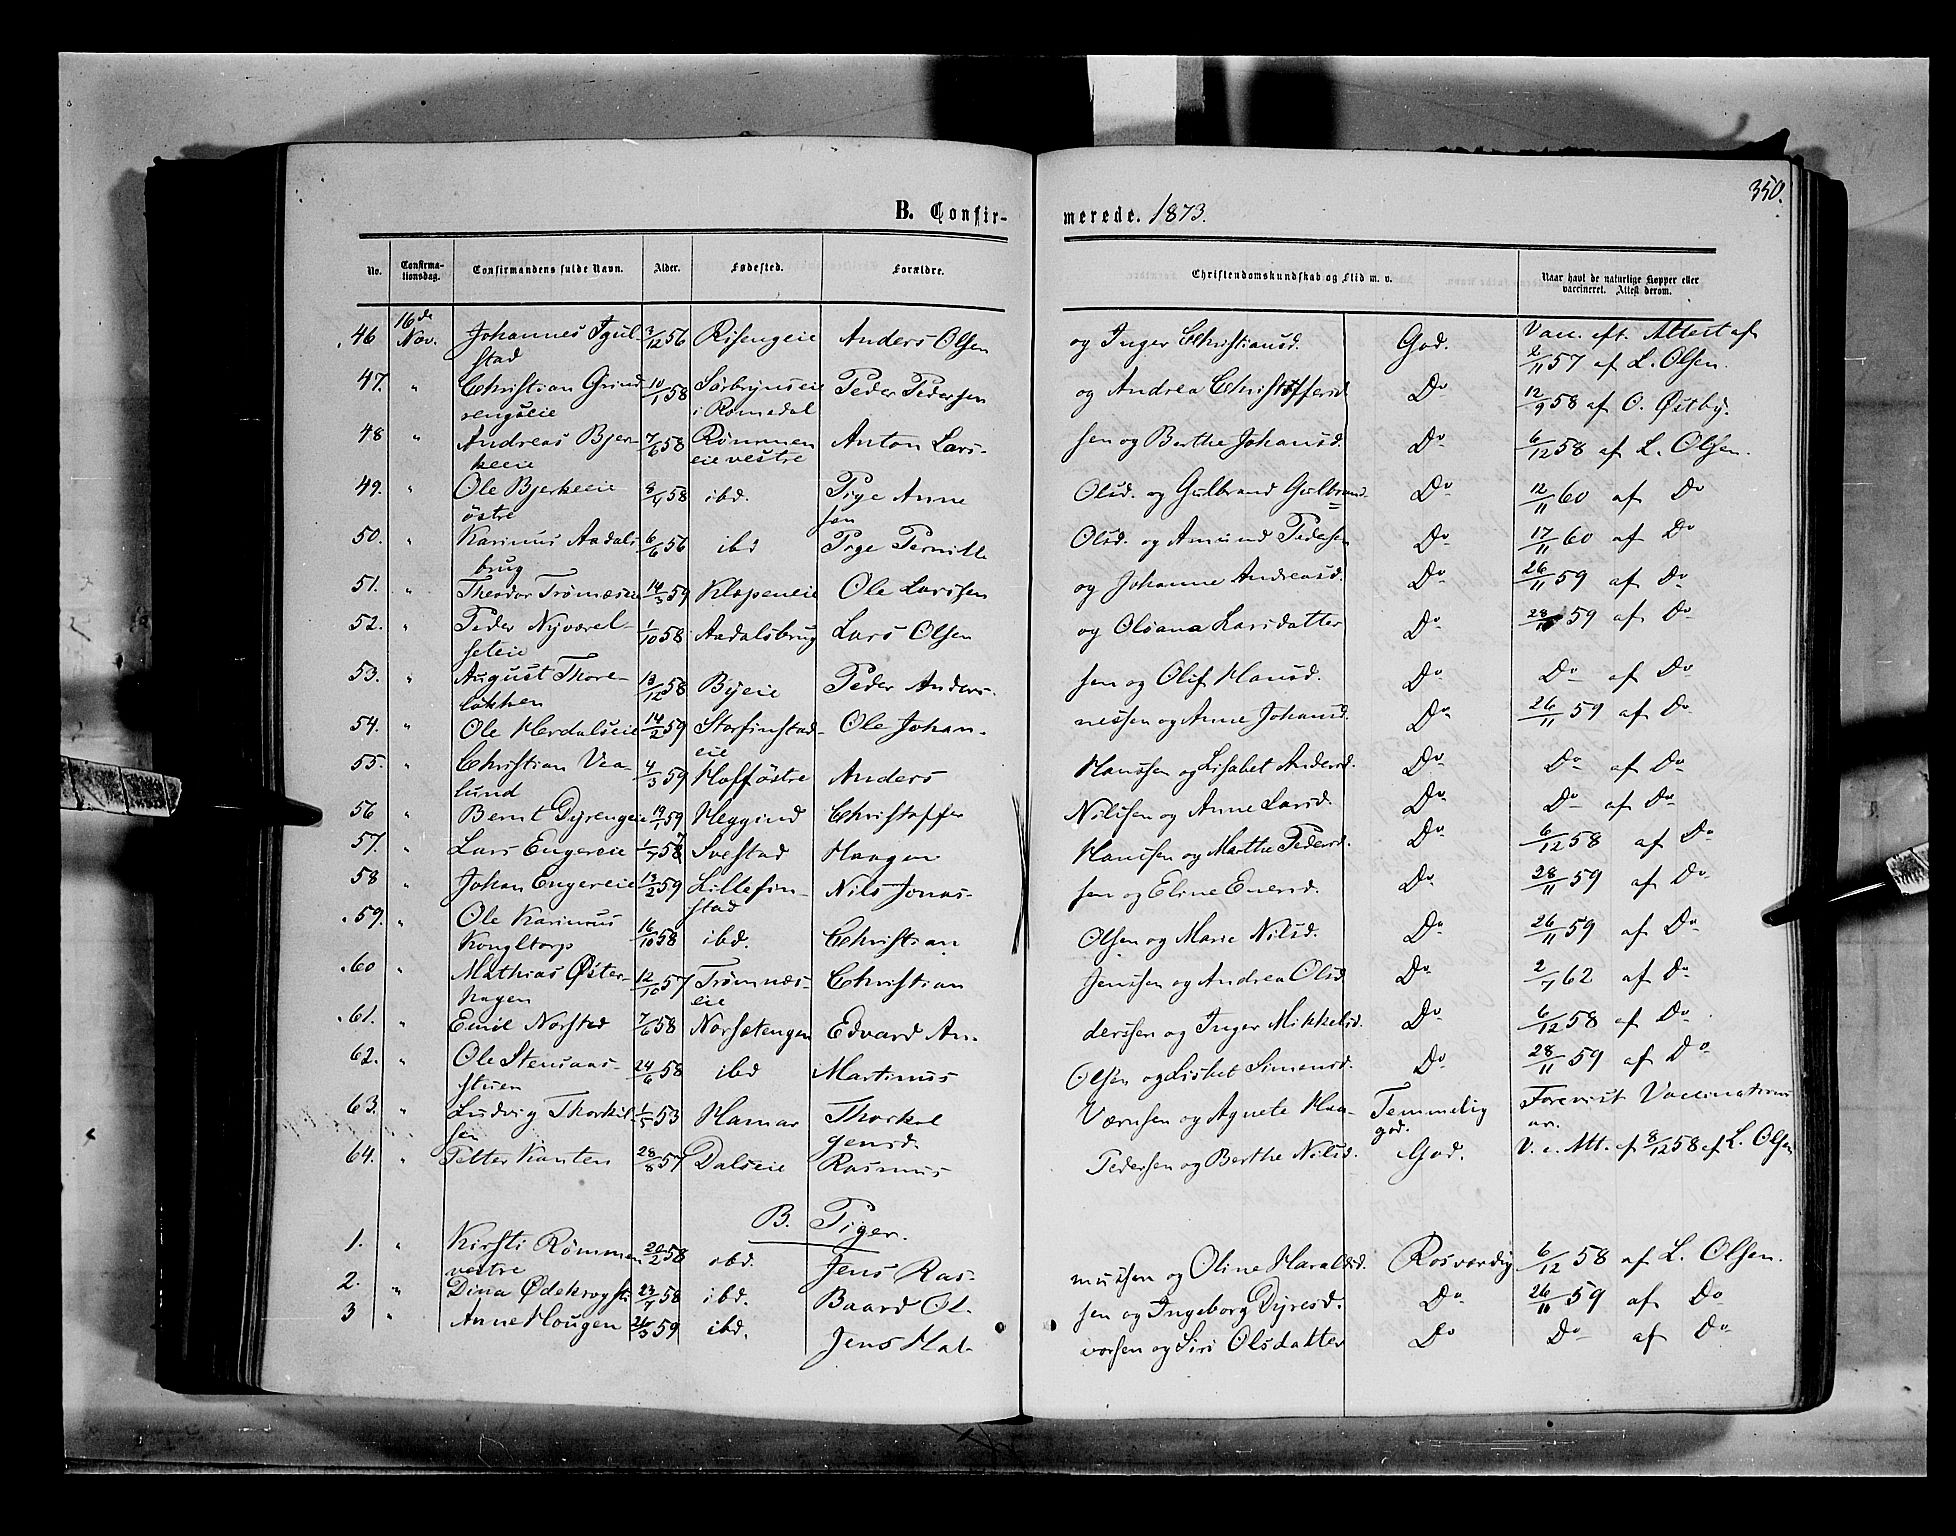 350.
B. Confirmerede. 1873.
No. Confirmationsdag. Confirmandens fulde Navn. Alder. Fødested. Forældre. Christendomskundskab og Flid m. v. Naar havt de naturlige Kopper eller vaccineret. Attest derom.
46 16de Nov. Johannes Igulstad 3/12 56 Risengeie Anders Olsen og Inger Christiansd. God. Vacc. eft. Attest af 2/11 57 af L. Olsen.
47. " Christian Grindrengseie 10/1 58 Sørbrynseie i Romedal Peder Pedersen og Andrea Christoffersd. Do 12/9 58 af O. Østby.
48 " Andreas Bjerkeeie 7/6 58 Rømmen eie vestre Anton Larssen og Berthe Johansd. Do 6/12 58 af L. Olsen.
49. " Ole Bjerkeeie østre 8/4 58 ibd. Pige Anne Olsd. og Gulbrand Gulbrandsen Do 12/11 60 af Do
50. " Karinus Aadalsbrug 6/6 56 ibd Pige Pernille Olsd. og Amund Pedersen Do 17/11 60 af Do
51. " Theodor Trømæseie 14/3 59 Klæpeneie Ole Larssen og Johanne Andreasd. Do 26/11 59 af Do
52. " Peder Nyværelseteie 1/10 58 Aadalsbrug Lars Olsen og Oleana Larsdatter Do 28/11 59 af Do
53. " August Thoreløkken 13/12 58 Byeie Peder Anderssen og Olif Hansd. Do Do af Do
54. " Ole Herdalseie 14/2 59 Storfinstadeie Ole Johannessen og Anne Johansd. Do 26/11 59 af Do
55. " Christian Vealund 4/3 59 Hoff østre Anders Hanssen og Lisabet Andersd. Do Do af Do
56 " Bernt Dyrengeie 19/1 59 Heggind Christoffer Nilssen og Anne Larsd. Do Do af Do
57. " Lars Engereie 1/7 58 Svestad Haagen Hanssen og Marthe Pedersd. Do 6/12 58 af Do
58 " Johan Engereie 13/2 59 Lillefinstad Nils Jonassen og Eline Enersd. Do 28/11 59 af Do
59. " Ole Karinus Kongltorp 16/10 58 ibd. Christian Olsen og Marie Nilsd. Do 26/11 59 af Do
60 " Mathias Østerhagen 12/10 57 Trømnæseie Christian Jenssen og Andrea Olsd Do 2/7 62 af Do
61. " Emil Norstad 7/6 58 Norsætengen Edvard Anderssen og Inger Mikkelsd. Do 6/12 58 af Do
62. " Ole Stensaasstuen 24/6 58 ibd Martinus Olsen og Lisbet Simensd. Do 28/11 59 af Do
63. " Ludvig Thorkilsen 1/5 53 Hamar Thorkel Værnsen og Agnete Haagensd. Temmelig god. Forevist Vaccinationsar.
64. " Petter Kanten 28/8 57 Dalseie Rasmus Pedersen og Berthe Nilsd. God. V. e. Att. af 8/12 58 af L. Olsen
B. Piger.
1. " Kirsti Rømmen vestre 20/2 58 ibd. Jens Rasmussen og Oline Haraldsd. Rosværdig 6/12 58 af L. Olsen.
2. " Dina Ødekrogsti 23/7 58 ibd. Baard Olsen og Ingeborg Dyresd. Do 26/11 59 af Do
3 " Anne Hougen 26/3 59 ibd. Jens Halvorsen og Siri Olsdatter Do Do af Do